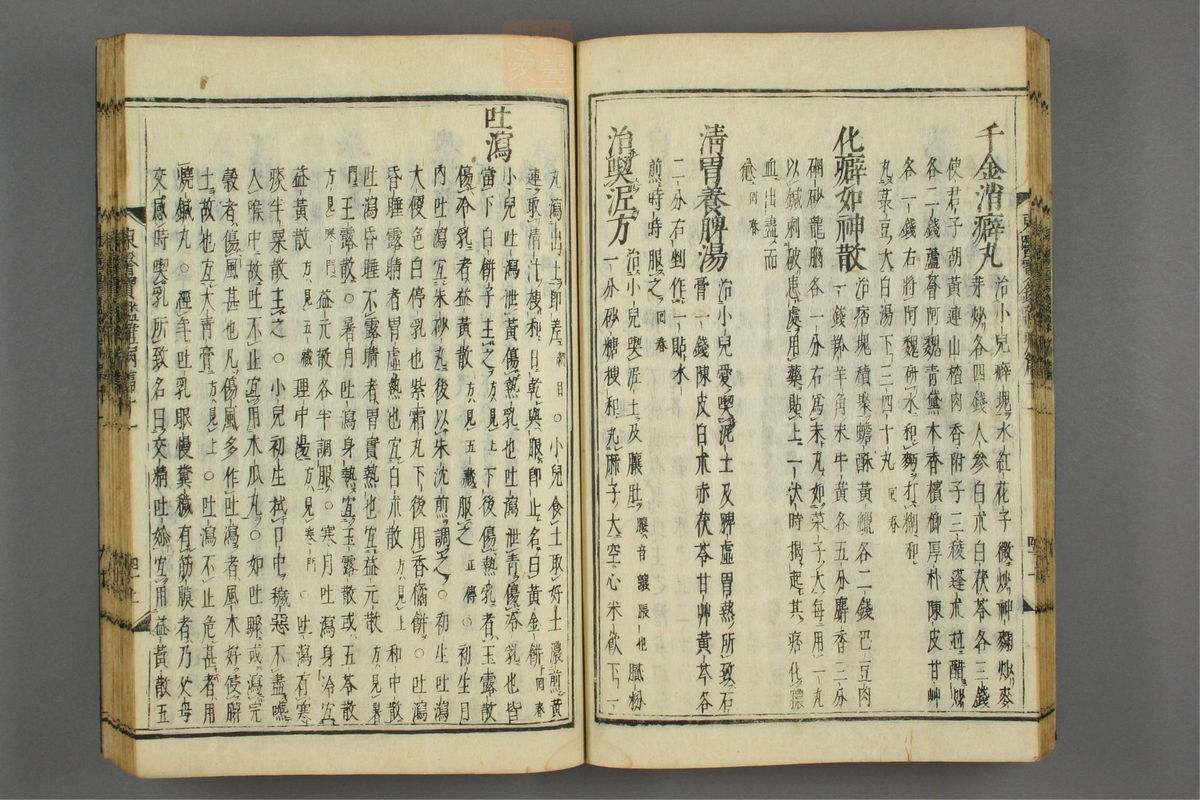 千金消癖丸 治小兒癖塊水紅花子微炒神麴炒麥
芽炒各四錢人參白朮白茯苓各三錢
使君子胡黃連山楂肉香附子三稜蓬朮並醋炒
各二錢蘆薈阿魏靑黛木香檳榔厚朴陳皮甘艸
各一錢右將阿魏硏水和麪打糊和
丸菉豆大白湯下三四十丸 回春
化癖如神散 治痞塊積聚蟾酥黃蠟各二錢巴豆肉
一錢羚羊角末牛黃各五分麝香三分
硼砂龍腦各一分右爲末丸如菜子大每用一丸
以鍼刺破患處用藥貼上一伏時揭起其痞化膿
血出盡而
愈 回春
淸胃養脾湯 治小兒愛喫泥土及脾虛胃熱所致石
膏一錢陳皮白朮赤茯苓甘艸黃芩各
二分右剉作一貼水
煎時時服之 回春
治喫泥方 治小兒喫泥土及䑋肚 䑋音讓脹也 膩粉
一分砂糖搜和丸麻子大空心米飮下一
丸瀉出土卽差 綱目 ○小兒食土取好土濃煎黃
連取淸汁搜和日乾與服卽止名曰黃金餠 回春
吐瀉 小兒吐瀉泄黃傷熱乳也吐瀉泄靑傷冷乳也皆
當下白餠子主之 方見上 下後傷熱乳者玉露散
傷冷乳者益黃散 方見五藏 服之 正傳 ○初生月
內吐瀉宜朱砂丸下後以朱沈煎調之○初生吐
大便色白停乳也紫霜丸下後用香橘餠○吐瀉
昏睡露睛者胃虛熱也宜白朮散 方見上 和中散
吐瀉昏睡不露睛者胃實熱也宜益元散 方見暑
門 玉露散○暑月吐瀉身熱宜玉露散或五苓散
方見寒門 益元散各半調服○寒月吐瀉身冷宜
益黃散 方見五藏 理中湯 方見寒門 ○吐瀉有寒
痰半粟散主之○小兒初生拭口中穢惡不盡嚥
入喉中故吐不止宜用木瓜丸○如吐䮭或瀉完
穀者傷風甚也凡傷風多作吐瀉者風木好侵脾
土故也宜大靑膏 方見上 ○吐瀉不止危甚者用
燒鍼丸○經年吐乳眼慢糞穢有筋膜者乃父母
交感時喫乳所致名曰交精吐妳宜用益黃散五